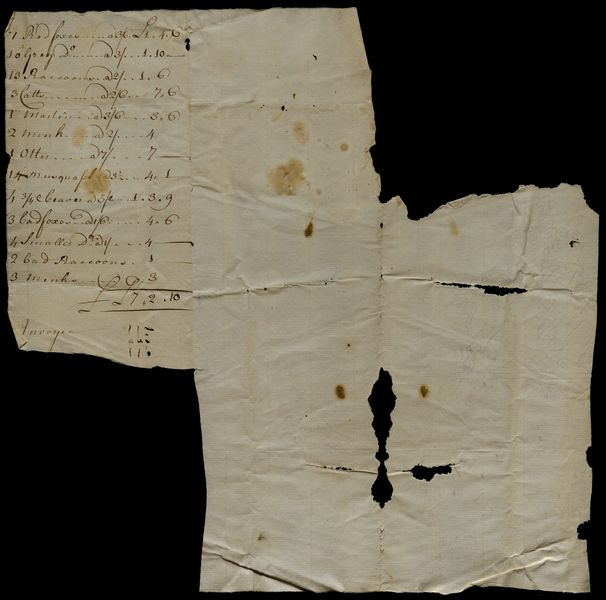 7 Red foxes .... a 3/6 £1 . 4 . 6
10 Grey Do ..... a 3/ . 1 . 10 —
13 Raccoons a 2/ .. 1 . 6
3 Catts ....... a 2/6 ... 7 . 6
1 Martin .... a 3/6 ... 3 . 6
2 mink .... a 2/ .... 4
1 Otter .... a 7/ ..... 7 —
14 musquash a 3½ .... 4 . 1
4¾ beaver a 5/ .. 1 . 3 . 9
3 bad foxes a 1/6 .... 4 . 6
4 Smaller Do a 1/ .... 4 —
2 bad Raccoons . 1
3 Minks .... 3
£7 . 2 . 10
Invoyce